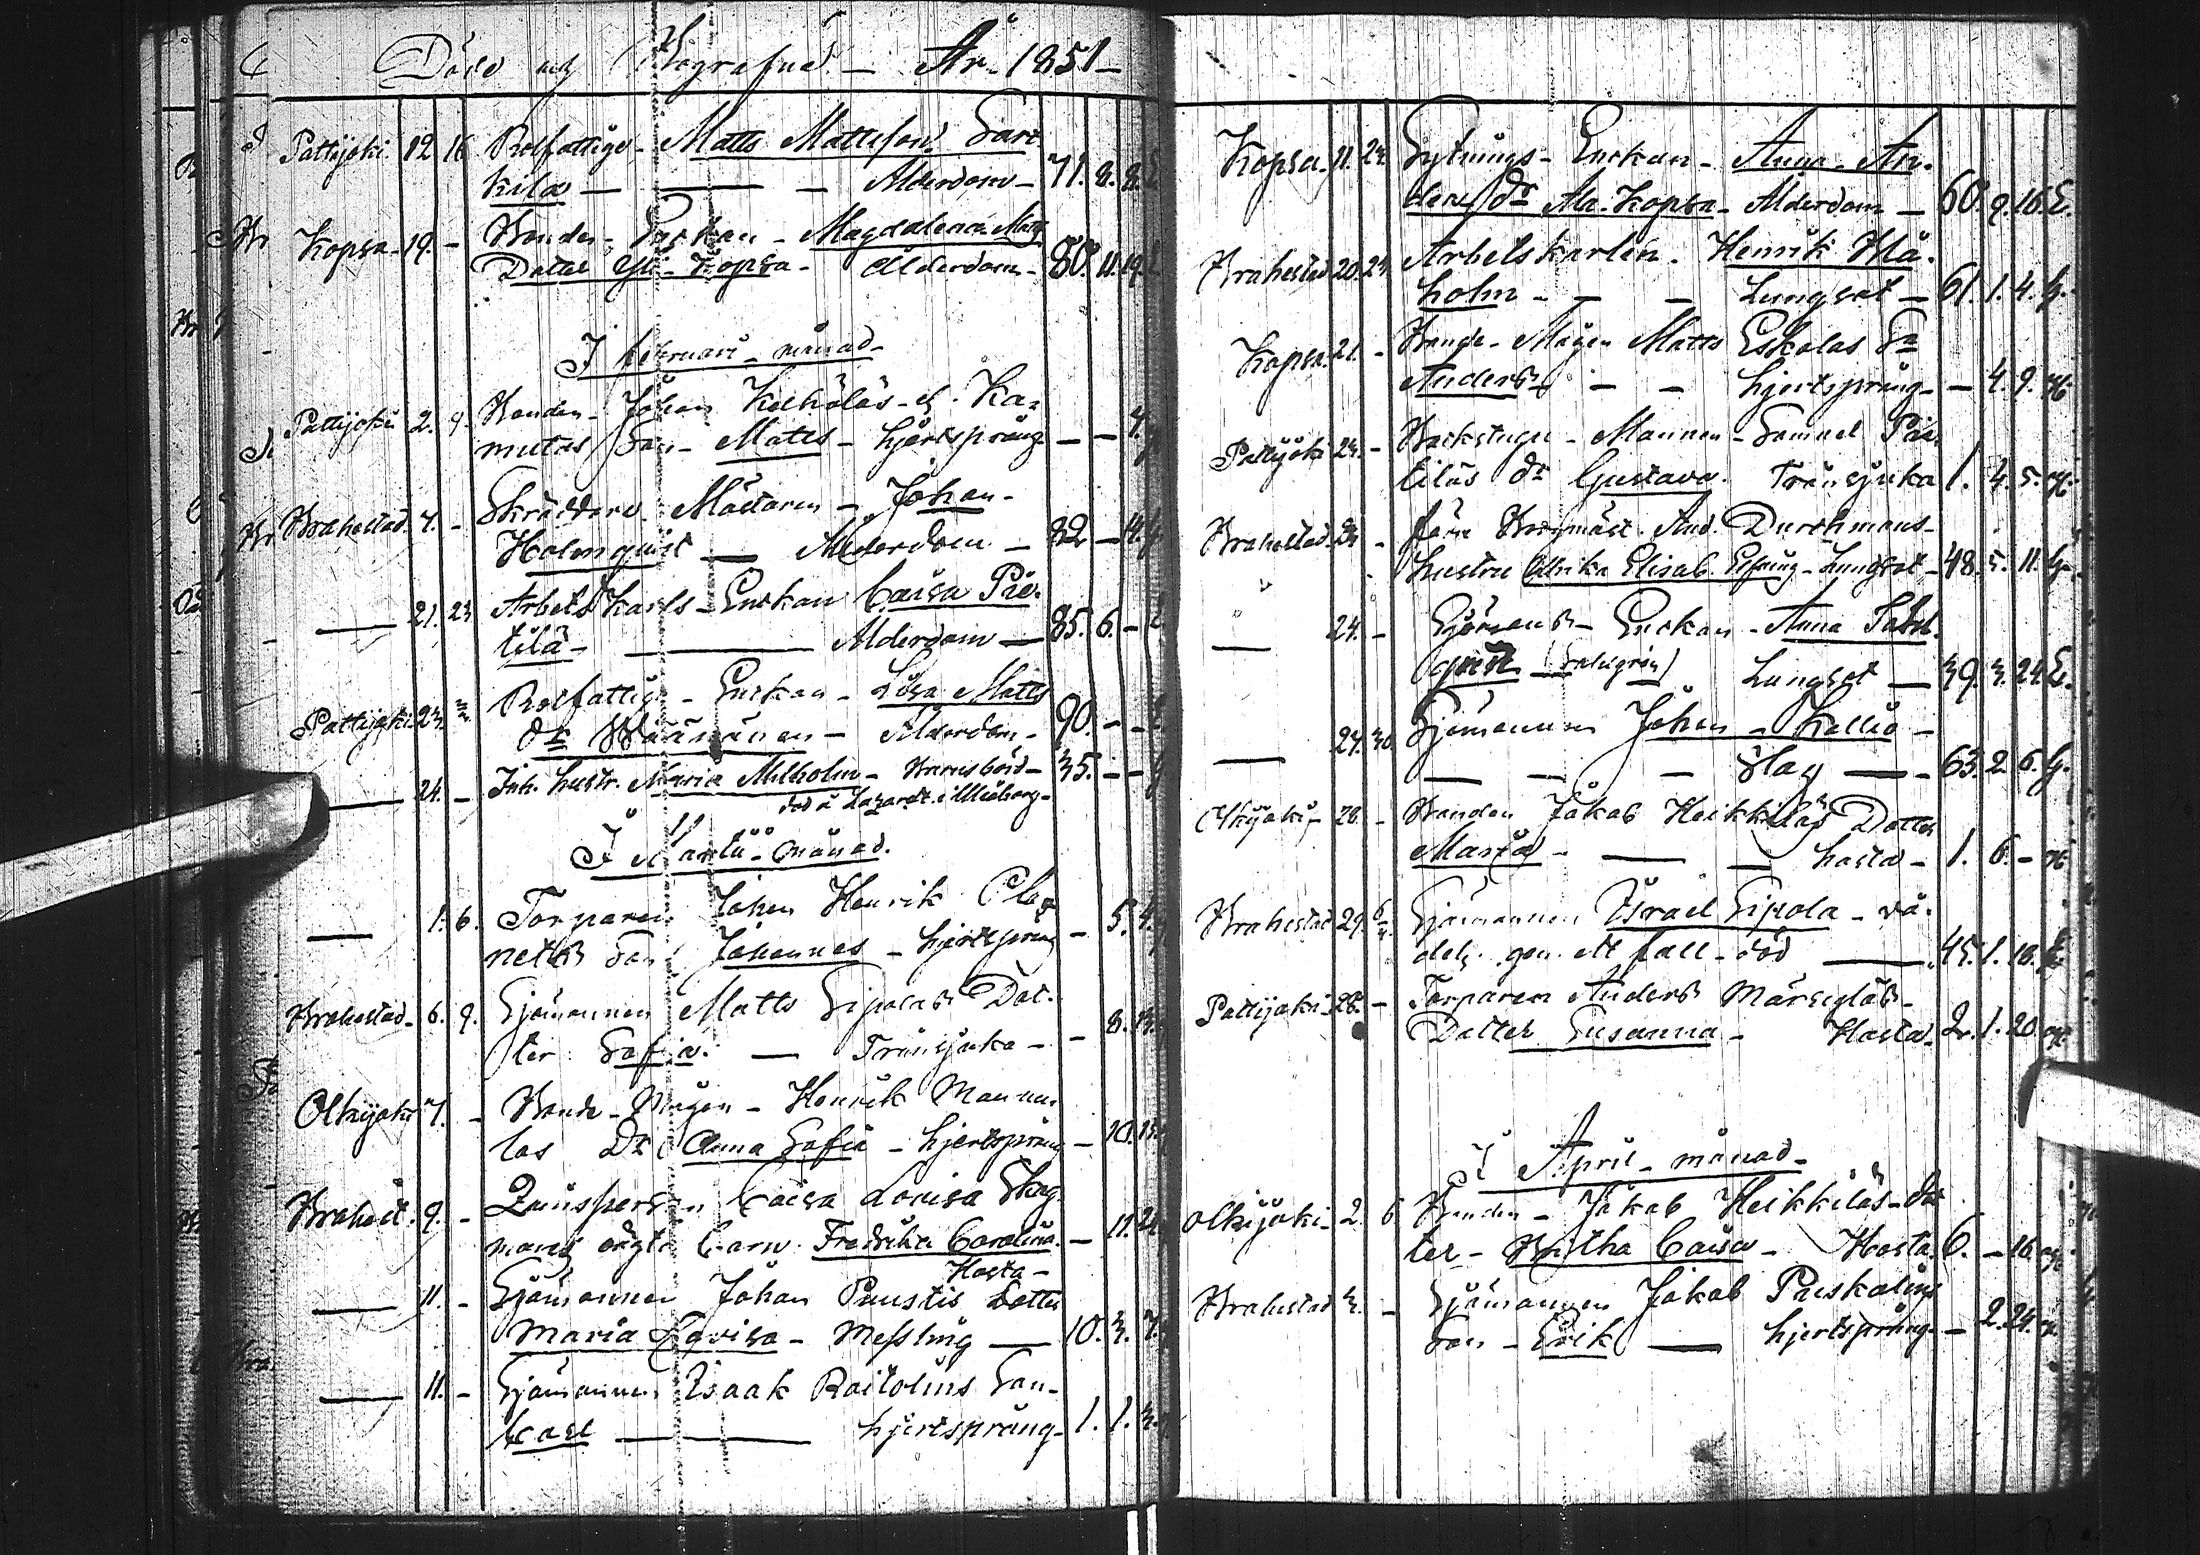 Döde och Begrafne - År 1851 -
Pattijoki 12 16 Rotfattige - Matts Mattsson Sar
kila - Alderdom - 71. 8. 8.
Kopsa - 19. - Bonde - Enkan - Magdalena Matts
Dotter Yli-Kopsa - Ålderdom - 80. 11. 19.
I februari - månad -
Pattijoki 2. 9. Bonden - Johan Keihäläs - l. Ka-
mulas Son - Matts - hjertsprång - - 4.
Brahestad. 4. - Skräddare Mästaren - Johan -
Holmquist - Alderdom - 82 - 4.
21. 23 Arbets karls - Enkan Caisa Pie-
tilä - Alderdom - 85. 6. -
Pattijoki 23. Rotfattige - Enkan - Lisa Matts
dr Väänänen - Ålderdom - 90. - -
24. - Inh. hustr. Maria Ahlholm - Barnsbörd - 35. - -
död å Lazarett. i Uleåborg -
I Martii - månad.
1. 6. Torparen Johan Henrik
netts Son Johannes - hjertsprång - 5. 4.
Brahestad - 6. 9. Sjömannen Matts Sipolas Dot-
ter Sofia. - Trånsjuka - - 8. 13.
Olkijoki 7. - Bonde - Mågen - Henrik Mannin
las Dr Anna Sofia - hjertsprång - 10. 15.
Brahest. 9. - Qvinspersen Caisa Lovisa Skog
mans oägta barn Fredrika Carolina. - 11. 24
Hosta -
11. - Sjömannen Johan Puustis Dotter
Maria Lovisa - Messling - 10. 3. 7.
11. - Sjömannen Isaak Raitolins Son -
Karl - hjertsprång - 1. 1. 3.
Kopsa. 11. 23. Sytnings - Enkan - Anna - An-
ders dr Ala-Kopsa - Alderdom - 60. 9. 16. E.
Brahestad 20. 23. Arbetskarlen. Henrik Blå-
holm - - - Lungsot - 61. 1. 4. g.
Kopsa. 21. - Bonde - Mågen Matts Eskolas Sn
Anders - - hjertsprång - - 4. 9. og.
Pattijoki 23. - Backstugu - Mannen - Samuel Pie-
tiläs dr Gustava. Trånsjuka 1. 4. 5. og.
Brahestad 24 - förn Borgmäst. And. Durchmans -
hustru Ulrika Elisab. Elfving - Lungsot - 48. 5. 11. g.
24. - Sjömans - Enkan - Anna Sahl-
gren (Salugrin) Lungsot - 39. 3. 24. E.
24. 30. Sjömannen Johan - Kallio -
- - - Slag - 63. 2. 6. g.
Olkijoki - 28. - Bonden Jakob Heikkiläs Dotter
Maria - - hosta - 1. 6. - og
Brahestad 29. Sjömannen Israel Sipola - vå-
del. gen. ett fall - död - 45. 1. 18.
Pattijoki - 28. - Torparen Anders Marsyläs -
Dotter Susanna - Hosta 2. 1. 20. og.
I April - månad -
Olkijoki - 2. 6 Bonden - Jakob Heikkiläs - dot
ter - Britha Caisa - Hosta 6. - 16. og.
Brahestad 3. - Sjömannen Jakob Puskalins
Son - Erik - hjertsprång - 2. 24.